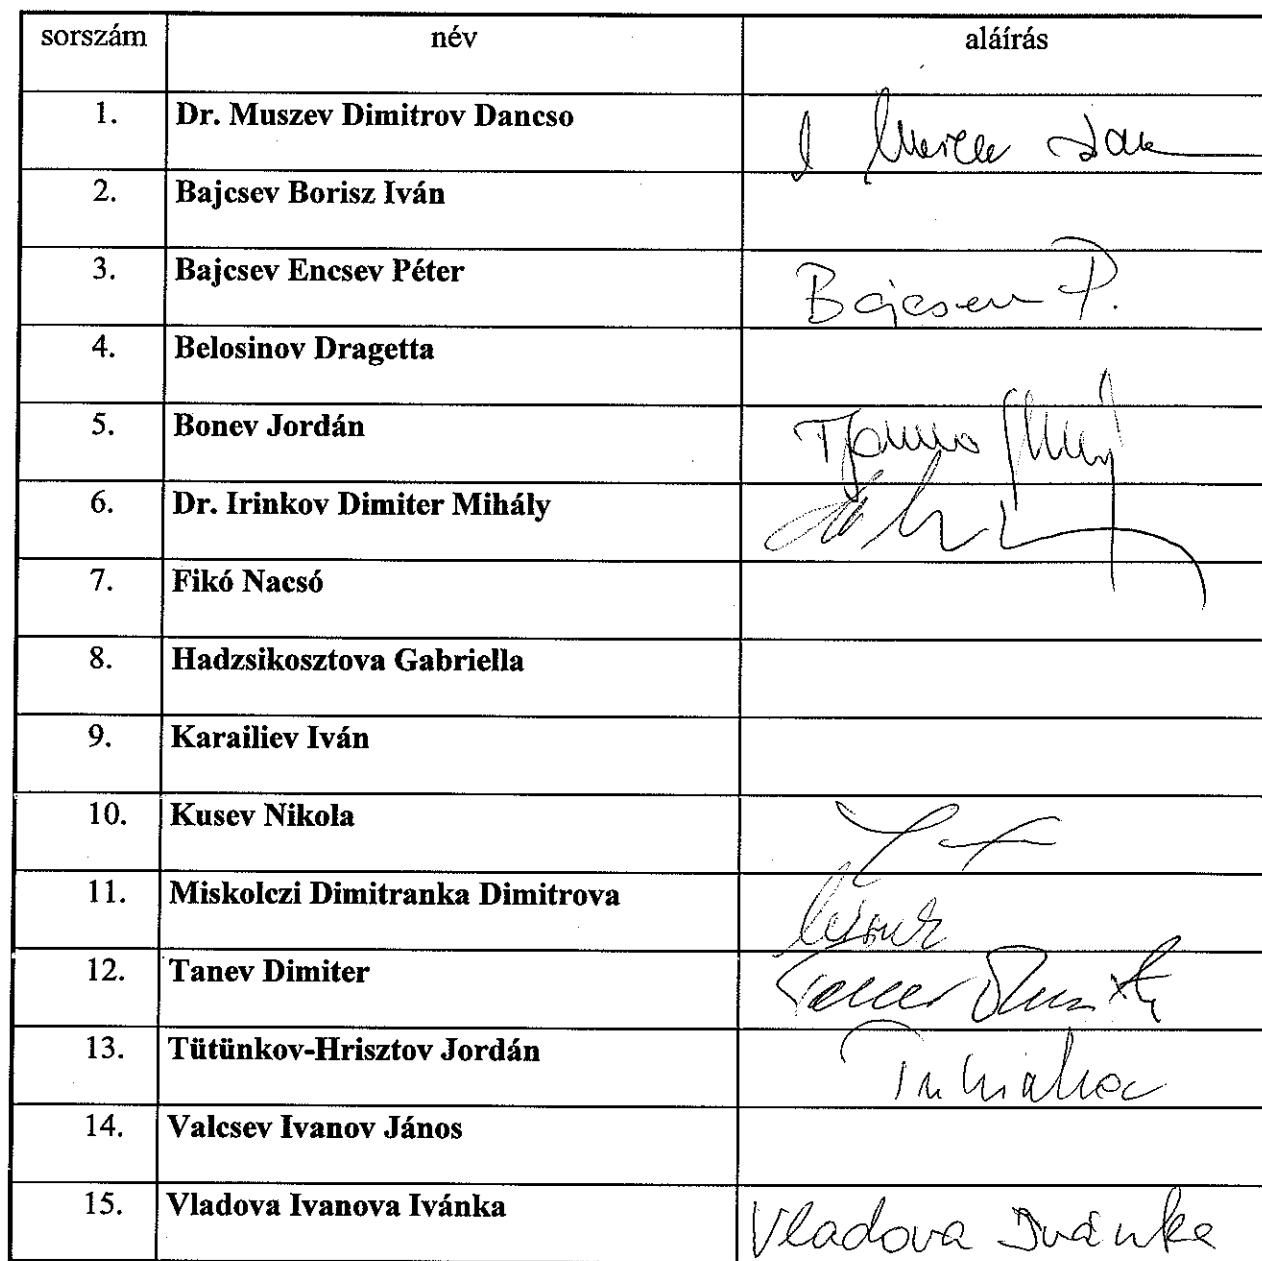 sorszám név aláírás
1. Dr. Muszev Dimitrov Dancso
2. Bajcsev Borisz Iván
3. Bajcsev Encsev Péter Bajcsev P.
4. Belosinov Dragetta
5. Bonev Jordán
6. Dr. Irinkov Dimiter Mihály
7. Fikó Nacsó
8. Hadzsikosztova Gabriella
9. Karailiev Iván
10. Kusev Nikola
11. Miskolczi Dimitranka Dimitrova
12. Tanev Dimiter
13. Tütünkov-Hrisztov Jordán
14. Valcsev Ivanov János
15. Vladova Ivanova Ivánka Vladova Ivánka